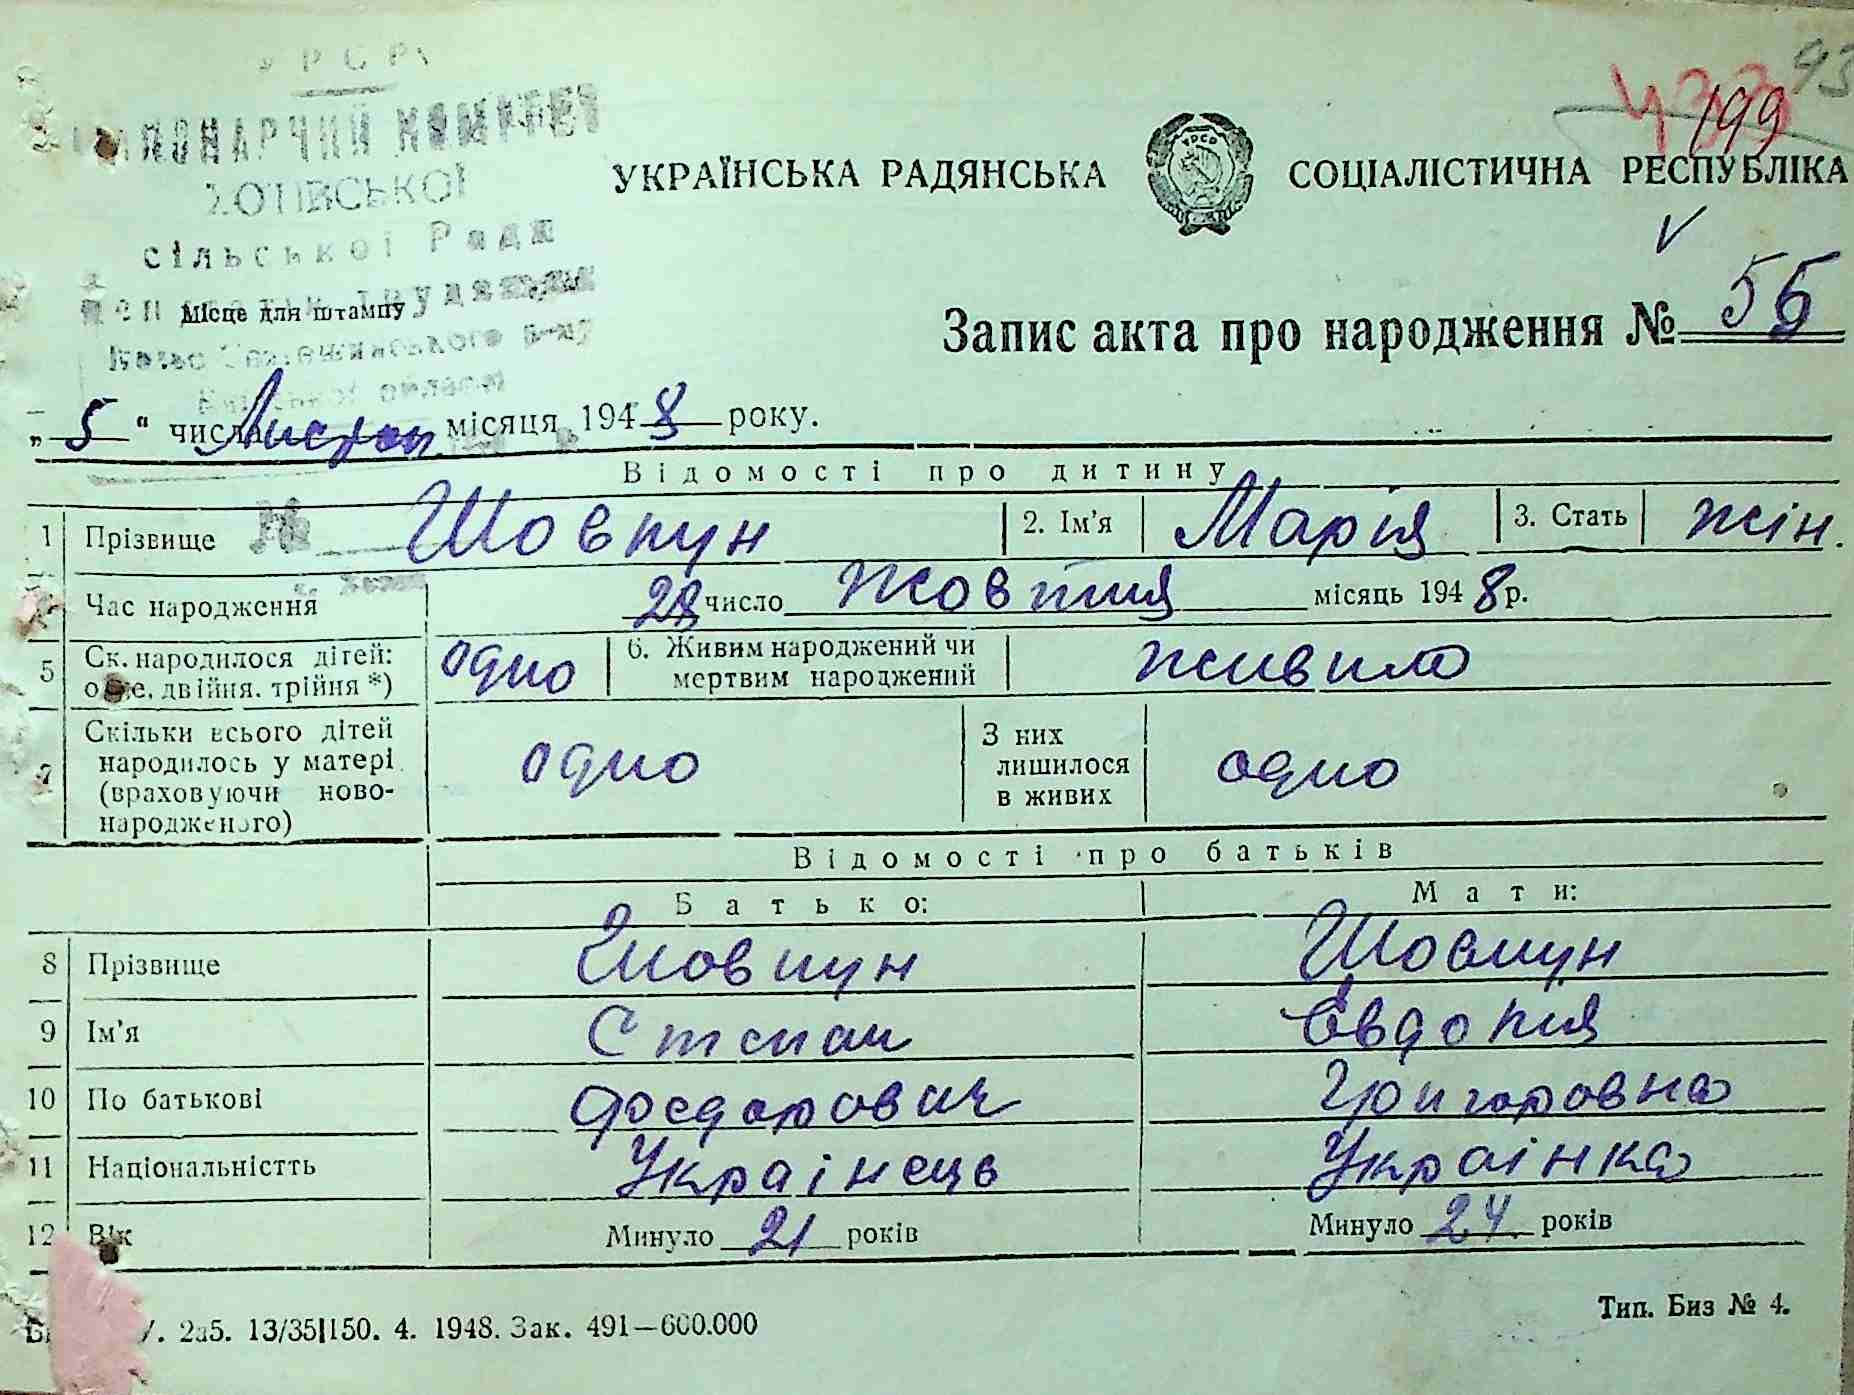 УРСР
ВИКОНАВЧИЙ КОМИТЕТ
ХОТІВСЬКОЇ
сільської Ради
Місце для штампу
433
199
93
УКРАЇНСЬКА РАДЯНСЬКА СОЦІАЛІСТИЧНА РЕСПУБЛІКА
Запис акта про народження № 56
„5“ числа Листоп місяця 1948 року.
Відомості про дитину
1 Прізвище Шовкун 2. Ім'я Марія 3. Стать жін.
Час народження 28 число жовтня місяць 1948 р.
5 Ск. народилося дітей: одно 6. Живим народжений чи живило
одне, двійня, трійня *) мертвим народжений
7 Скільки всього дітей народилось у матері (враховуючи ново-народженого) одно З них лишилося в живих одно
Відомості про батьків
Батько: Мати:
8 Прізвище Шовкун Шовкун
9 Ім'я Степан Євдокія
10 По батькові Федорович Григоровна
11 Національністть Украінець Украінка
12 Вік Минуло 21 років Минуло 24 років
2а5. 13/35|150. 4. 1948. Зак. 491—600.000
Тип. Биз № 4.